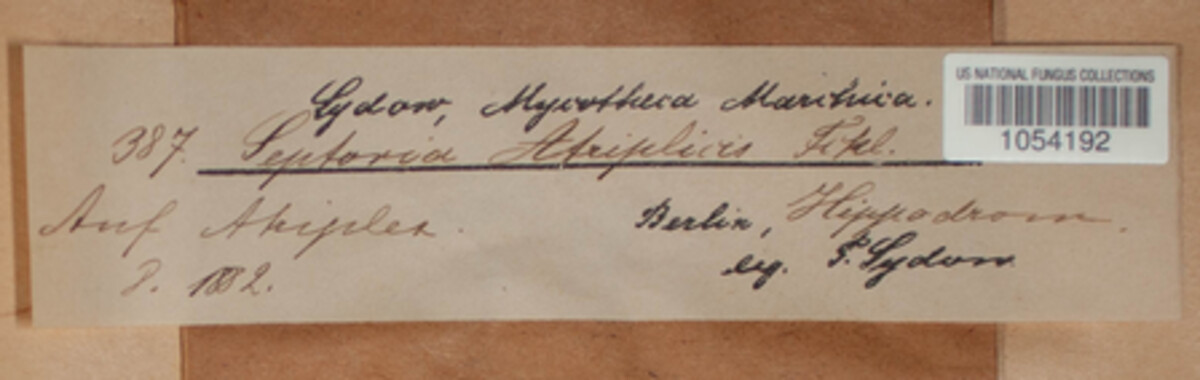 Sydow, Mycotheca Marchica.
387. Septoria Atriplicis Fckl.
Auf Atriplex.
8. 1882.
Berlin, Hippodrom.
leg. P. Sydow
US NATIONAL FUNGUS COLLECTIONS
1054192